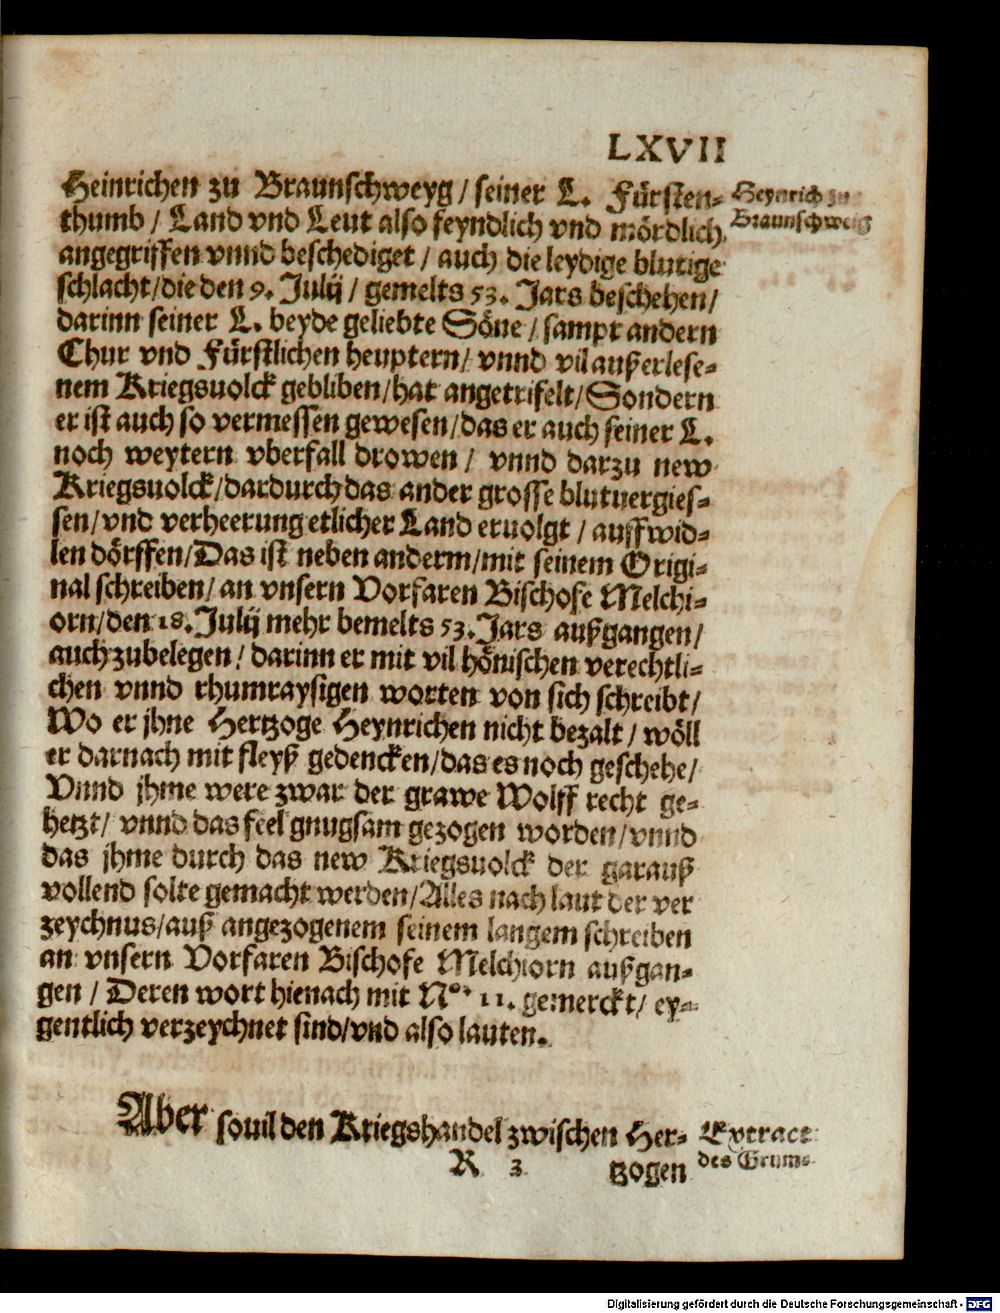 LXVII
Heinrichen zu Braunschweyg / seiner L. Fürsten-
thumb / Land vnd Leut also feyndlich vnd mördlich
angegriffen vnnd beschediget / auch die leydige blutige
schlacht / die den 9. Julij / gemelts 53. Jars beschehen /
darinn seiner L. beyde geliebte Söne / sampt andern
Chur vnd Fürstlichen heuptern / vnnd vil außerlese-
nem Kriegsuolck gebliben / hat angetrifelt / Sondern
er ist auch so vermessen gewesen / das er auch seiner L.
noch weytern vberfall drowen / vnnd darzu new
Kriegsuolck / dardurch das ander grosse blutuergies-
sen / vnd verheerung etlicher Land eruolgt / auffwid-
len dörffen / Das ist neben anderm / mit seinem Origi-
nal schreiben / an vnsern Vorfaren Bischofe Melchi-
orn / den 18. Julij mehr bemelts 53. Jars außgangen /
auch zubelegen / darinn er mit vil hönischen verechtli-
chen vnnd rhumraysigen worten von sich schreibt /
Wo er jhne Hertzoge Heynrichen nicht bezalt / wöll
er darnach mit fleyß gedencken / das es noch geschehe /
Vnnd jhme were zwar der grawe Wolff recht ge-
hetzt / vnnd das feel gnugsam gezogen worden / vnnd
das jhme durch das new Kriegsuolck der garauß
vollend solte gemacht werden / Alles nach laut der ver
zeychnus / auß angezogenem seinem langem schreiben
an vnsern Vorfaren Bischofe Melchiorn außgan-
gen / Deren wort hienach mit No. 11. gemerckt / ey-
gentlich verzeychnet sind / vnd also lauten.
Heynrich zu
Braunschweig
Aber souil den Kriegshandel zwischen Her-
R 3 tzogen
Extract
des Grum-
Digitalisierung gefördert durch die Deutsche Forschungsgemeinschaft - DFG